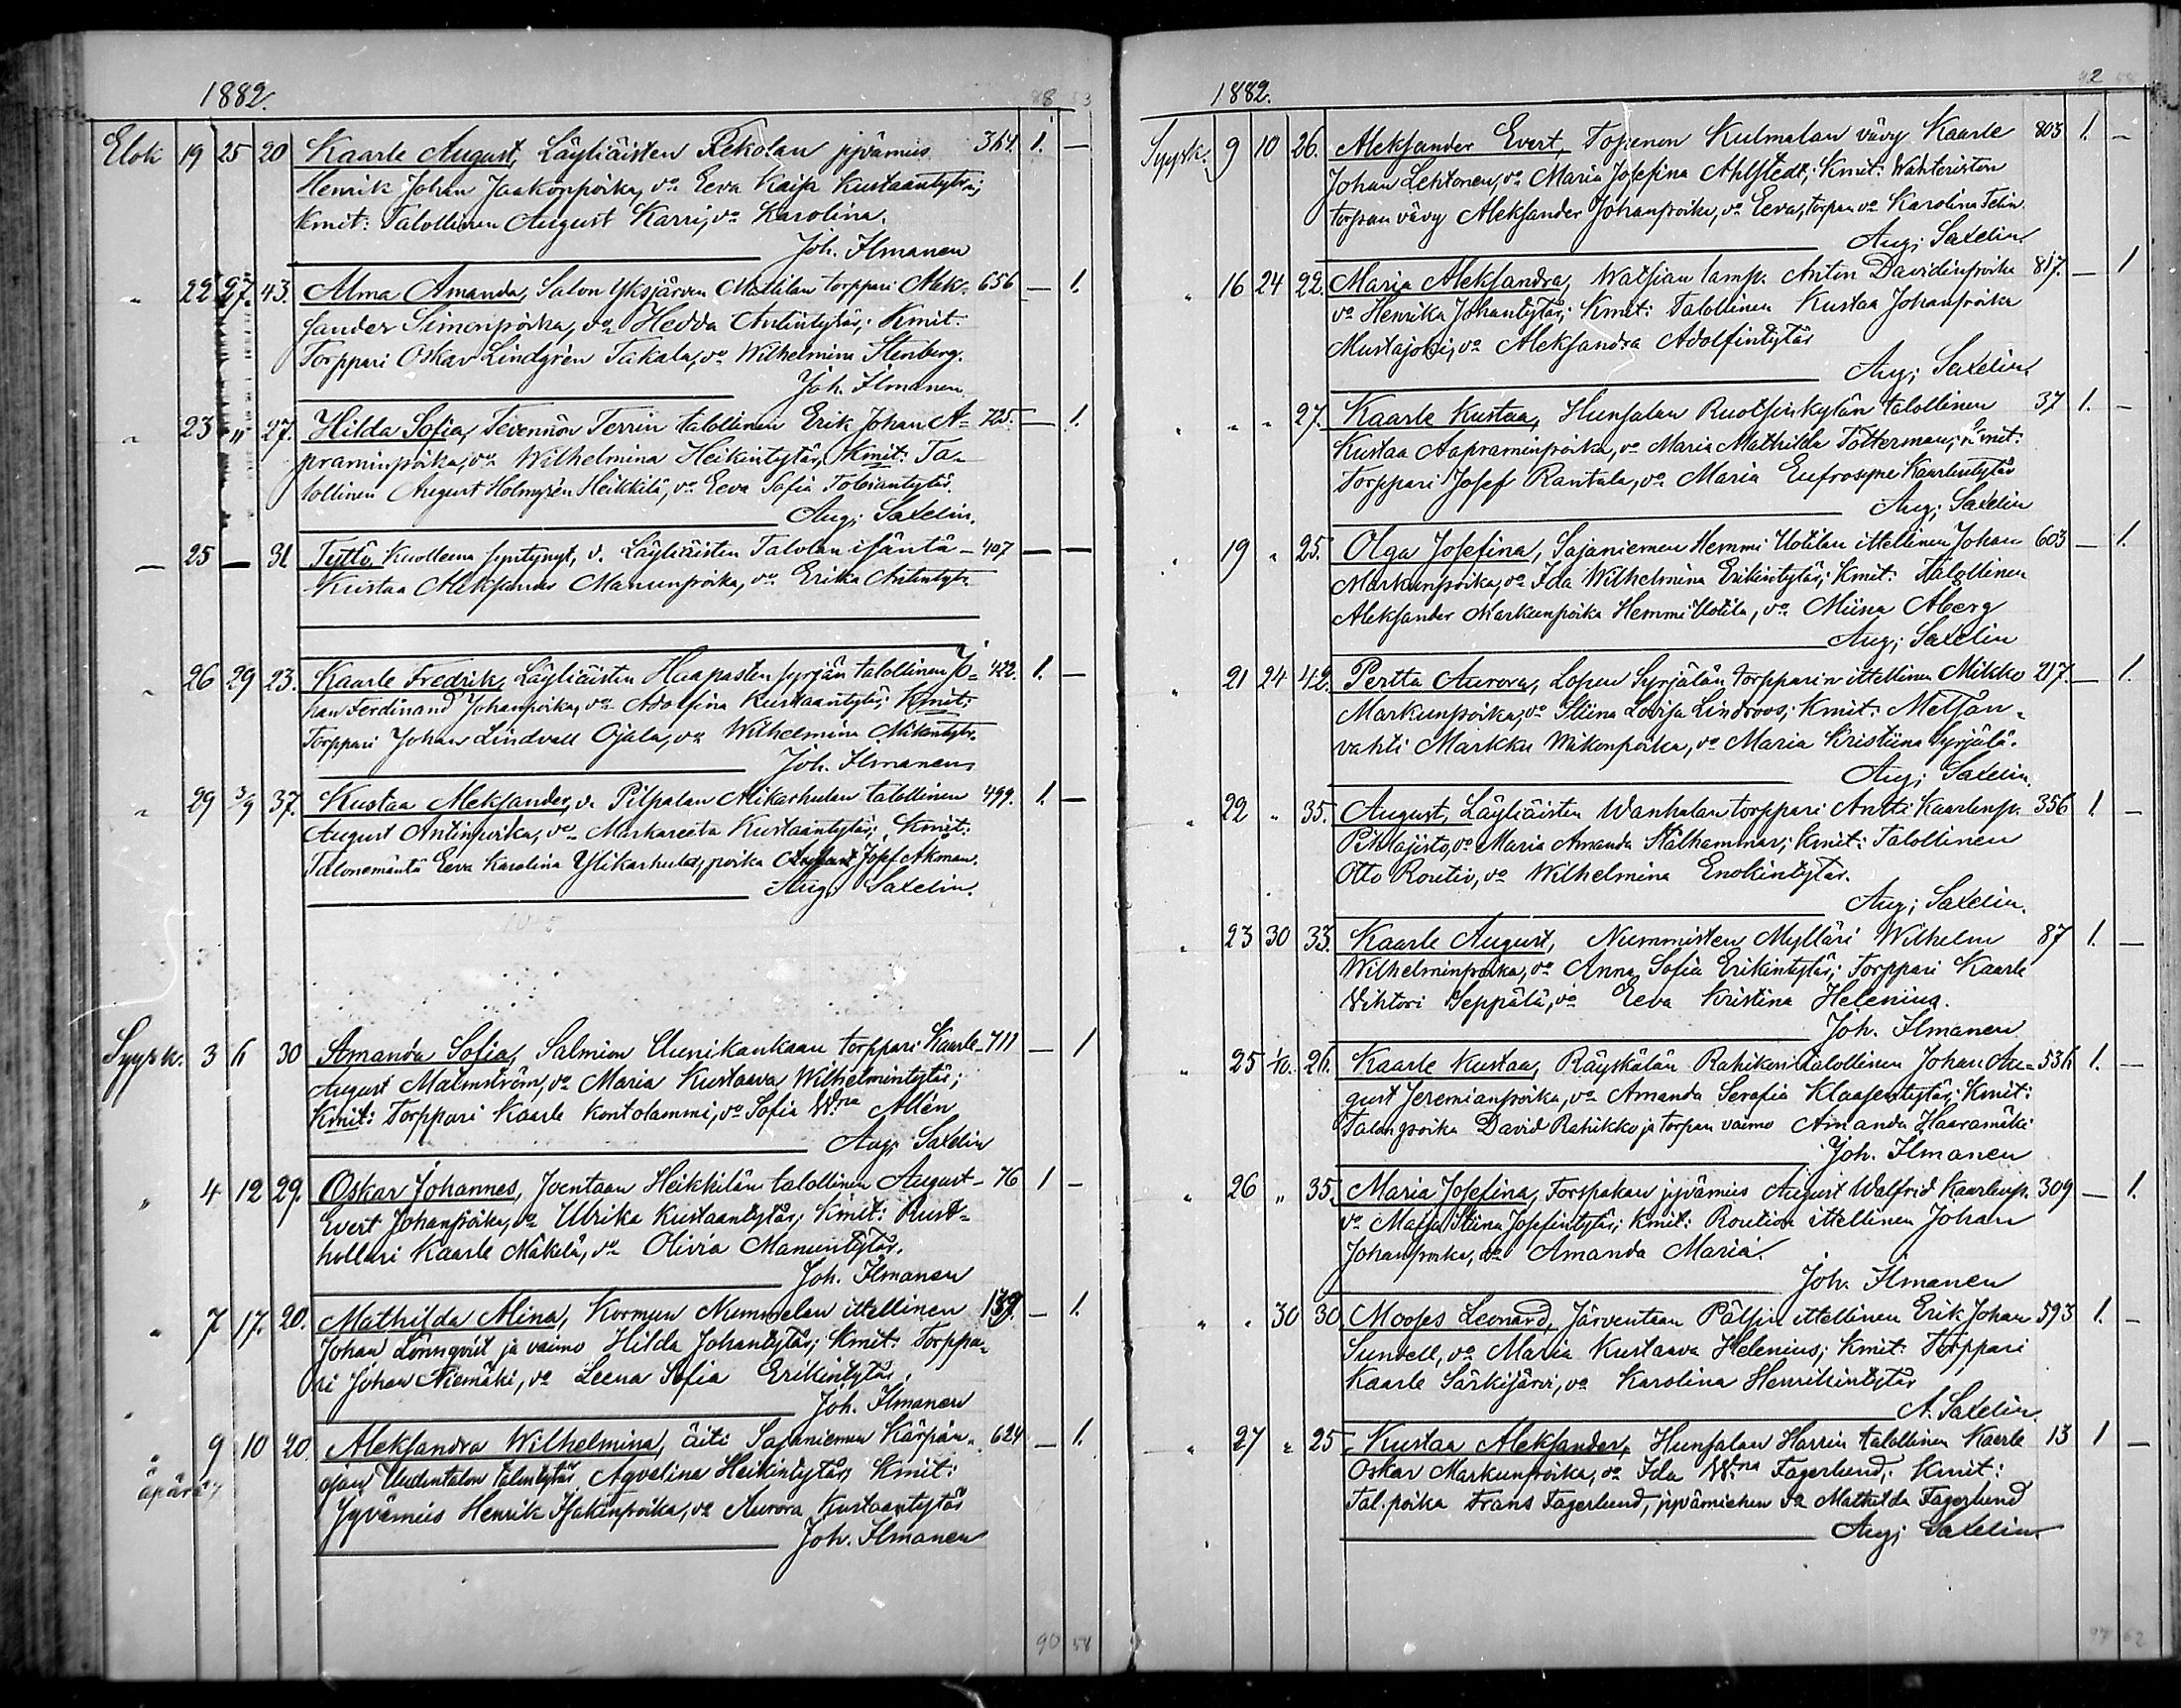 1882.
88 53
Elok 19 25 20 Kaarle August, Läyliäisten Rekolan jyvämies 364. 1. —
Henrik Johan Jaakonpoika, vo Eeva Kaisa Kustaantytär;
Kmit: Talollinen August Karri, vo Karolina.
Joh. Ilmanen
" 22 27 43. Alma Amanda, Salon Yksjärven Mattilan torppari Alek- 656 — 1.
sander Simonpoika, vo Hedda Antintytär; Kmit:
Torppari Oskar Lindgrén Takala, vo Wilhelmina Stenberg.
Joh. Ilmanen
" 23 " 27. Hilda Sofia, Tevennön Terrin talollinen Erik Johan A- 725. — 1.
praminpoika, vo Wilhelmina Heikintytär, Kmit: Ta-
lollinen August Holmgrén Heikkilä, vo Eeva Sofia Tobiantytär.
Aug; Saxelin.
— 25 — 31 Tyttö, Kuolleena syntynyt, v. Läyliäisten Talolan isäntä 407 — —
Kustaa Aleksander Manunpoika, vo Erika Antintytr
" 26 29 23. Kaarle Fredrik, Läyliäisten Haapasten syrjän talollinen Jo- 422. 1. —
han Ferdinand Johanpoika, vo Adolfina Kustaantytär; Kmit:
Torppari Johan Lindvall Ojala, vo Wilhelmina Mikontytr.
Joh. Ilmanen
" 29 3/9 37. Kustaa Aleksander, v. Pilpalan Alikarhulan talollinen 499. 1. —
August Antinpoika, vo Markareeta Kustaantytär; Kmit:
Talonemäntä Eeva Karolina Ylikarhula, poika Josef Akman.
Aug; Saxelin.
Syysk. 3 6 30 Amanda Sofia, Salmion Uunikankaan torppari Kaarle 711 — 1
August Malmström, vo Maria Kustaava Wilhelmintytär;
Kmit: Torppari Kaarle Kontolammi, vo Sofia W:na Allén
Aug; Saxelin
" 4 12 29. Oskar Johannes, Joentaan Heikkilän talollinen August 76 1 —
Evert Johanpoika, vo Ulrika Kustaantytär; Kmit: Rust-
hollari Kaarle Mäkelä, vo Olivia Manuntytär.
Joh. Ilmanen
" 7 17. 20. Mathilda Alina, Kormun Nummelan ittellinen 139. — 1.
Johan Lönnqvist ja vaimo Hilda Johantytär; Kmit: Torppa-
ri Johan Niemäki, vo Leena Sofia Erikintytär.
Joh. Ilmanen
" 9 10 20. Aleksandra Wilhelmina, äiti Sajaniemen Kärpän- 624 — 1.
äpärä ojan Uudentalon talontytär Agvelina Heikintytär; Kmit:
Jyvämies Henrik Isakinpoika, vo Aurora Kustaantytär
Joh. Ilmanen
90 58
1882.
92 58
Syysk. 9 10 26. Aleksander Evert, Topenon Kulmalan vävy Kaarle 803 1. —
Johan Lehtonen, vo Maria Josefina Ahlstedt; Kmit: Wahteriston
torpan vävy Aleksander Johanpoika, vo Eeva, torpan vo Karolina Felin
Aug; Saxelin.
" 16 24 22. Maria Aleksandra, Watsian lamp. Anton Davidinpoika 817. — 1
vo Henrika Johantytär; Kmit: Talollinen Kustaa Johanpoika
Mustajoki, vo Aleksandra Adolfintytär
Aug; Saxelin.
" " " 27. Kaarle Kustaa, Hunsalan Ruotsinkylän talollinen 37 1. —
Kustaa Aapraminpoika, vo Maria Mathilda Tötterman; Kmit:
Torppari Josef Rantala, vo Maria Eufrosyne Kaarlentytär
Aug; Saxelin
" 19 " 25. Olga Josefina, Sajaniemen Hemmi Uotilan ittellinen Johan 603 — 1.
Markunpoika, vo Ida Wilhelmina Erikintytär; Kmit: Talollinen
Aleksander Markunpoika Hemmi Uotila, vo Miina Åberg
Aug; Saxelin
" 21 24 42. Pertta Aurora, Lopen Syrjälän torpparin ittellinen Mikko 217. — 1.
Markunpoika, vo Stiina Lovisa Lindroos; Kmit: Metsän-
vahti Markku Mikonpoika, vo Maria Kristiina Syrjälä.
Aug; Saxelin.
" 22 " 35. August, Läyliäisten Wanhalan torppari Antti Kaarlenp. 356 1. —
Pihlajisto, vo Maria Amanda Stålhammar; Kmit: Talollinen
Otto Routio, vo Wilhelmina Enokintytär.
Aug; Saxelin.
" 23 30 33. Kaarle August, Nummisten Mylläri Wilhelm 87 1. —
Wilhelminpoika, vo Anna Sofia Erikintytär; Torppari Kaarle
Wihtori Seppälä, vo Eeva Kristina Helenius.
Joh. Ilmanen
" 25 1/10. 26. Kaarle Kustaa, Räyskälän Rahikon talollinen Johan Au- 536 1. —
gust Jeremianpoika, vo Amanda Serafia Klaasentytär; Kmit:
Talonpoika David Rahikko ja torpan vaimo Amanda Haaramäki
Joh. Ilmanen
" 26 " 35. Maria Josefina, Forspakan jyvämies August Walfrid Kaarlenp. 309 — 1.
vo Maija Stiina Josefintytär; Kmit: Roution ittellinen Johan
Johanpoika, vo Amanda Maria.
Joh. Ilmanen
" " 30 30 Mooses Leonard, Järventaan Pälsin ittellinen Erik Johan 593 1. —
Sundell, vo Maria Kustaava Helenius; Kmit: Torppari
Kaarle Särkijärvi, vo Karolina Henrikintytär
A. Saxelin.
" 27 " 25 Kustaa Aleksander, Hunsalan Harrin talollinen Kaarle 13 1 —
Oskar Markunpoika, vo Ida W:na Fagerlund; Kmit:
Tal. poika Frans Fagerlund, jyvämiehen vo Mathilda Fagerlund
Aug; Saxelin
97 62